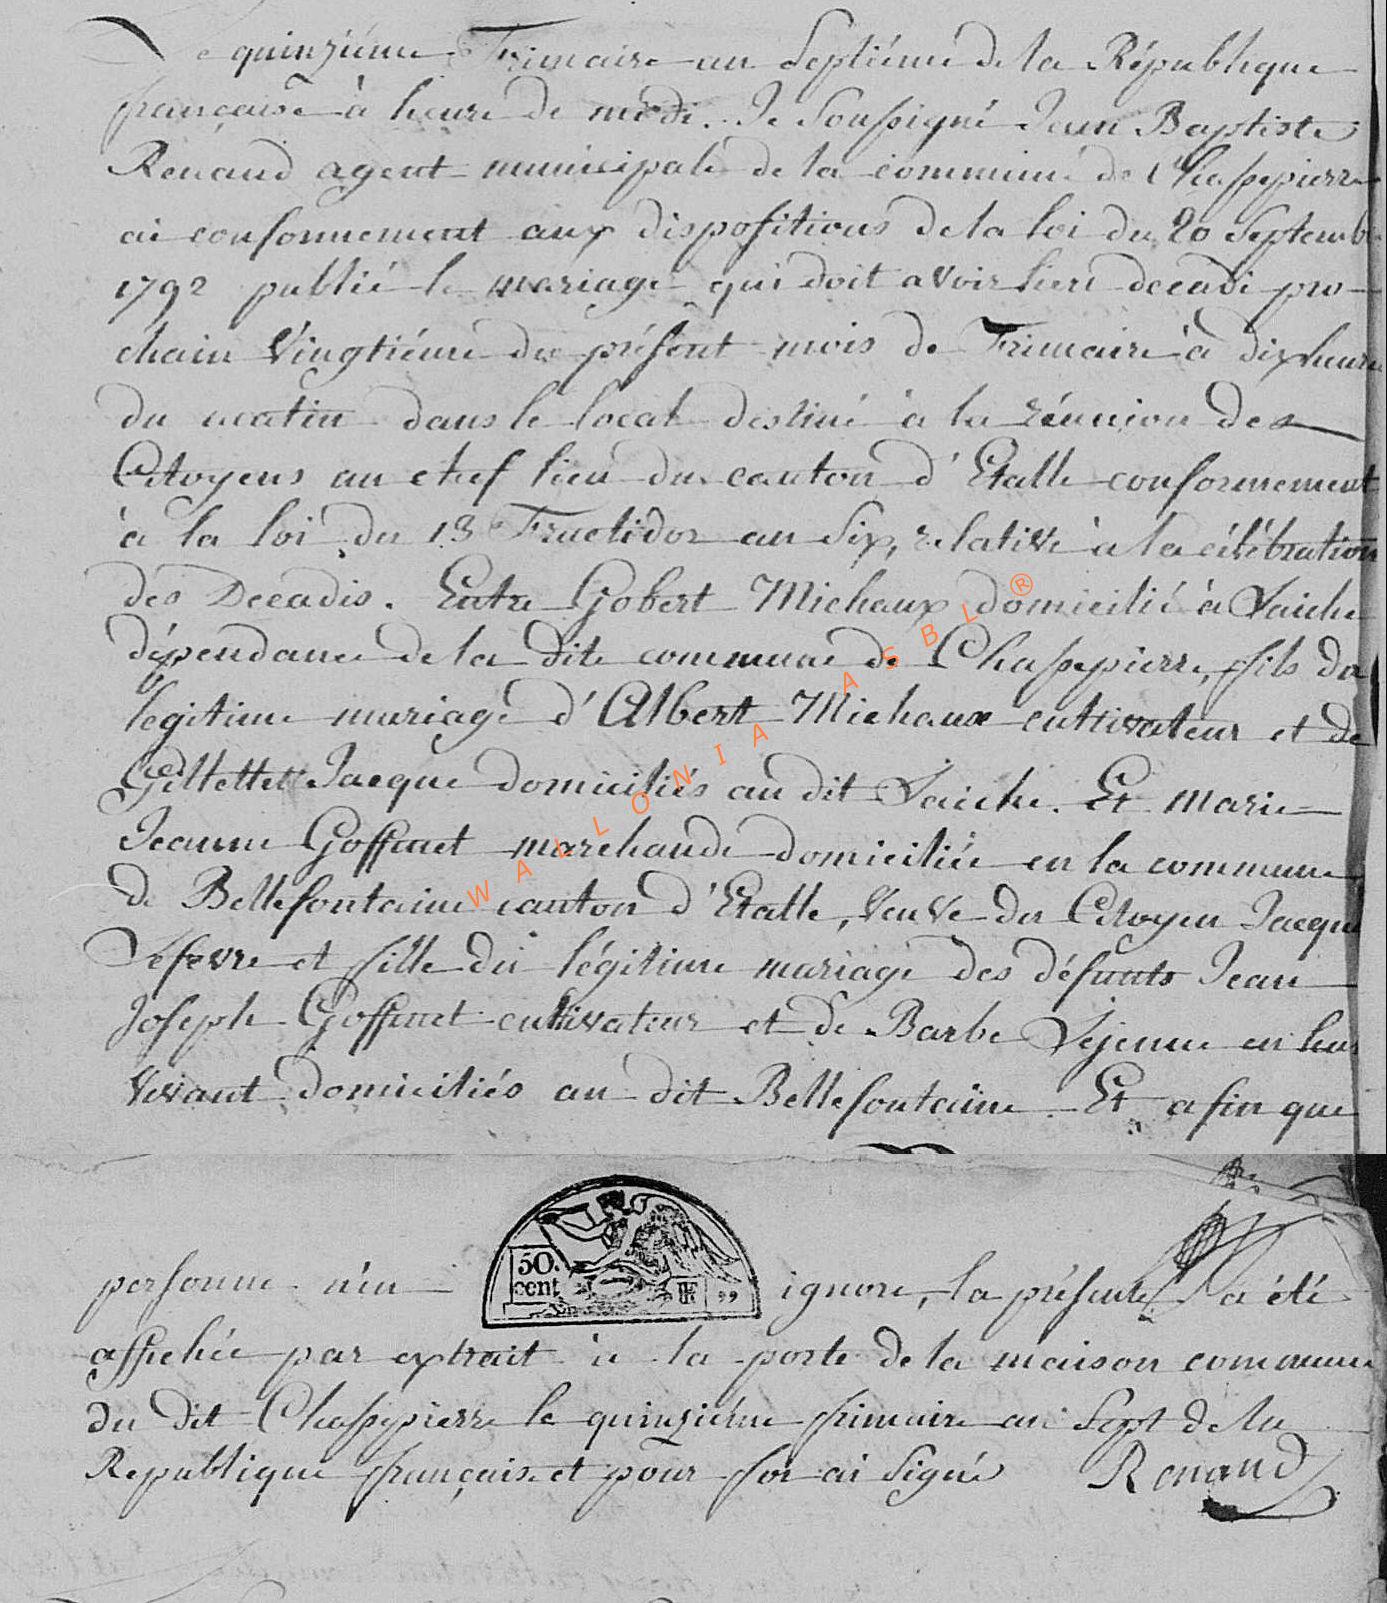 Le quinziéme Frimaire an Septiéme de la République
française à heure de midi. Je Soussigné Jean Baptiste
Renaud agent municipale de la commune de Chassepierre
ai conformement aux dispositions de la loi du 20 Septemb
1792 publié le mariage qui doit avoir lieu decadi pro-
chain Vingtiéme du présent mois de Frimaire à dix heure
du matin dans le local destiné à la réunion des
Citoyens au chef lieu du canton d'Etalle conformement
à la loi du 13 Fructidor an Six, relative à la célébration
des Decadis. Entre Gobert Michaux domicilié à Laiche
dépendance de la dite commune de Chassepierre, fils du
légitime mariage d'Albert Michaux cultivateur et de
Gillette Jacque domiciliés au dit Laiche. Et Marie
Jeanne Goffinet marchande domiciliée en la commune
de Bellefontaine canton d'Etalle, Veuve du Citoyen Jacque
Lefevre et fille du légitime mariage des défunts Jean
Joseph Goffinet cultivateur et de Barbe Lejeune en leur
Vivant domiciliés au dit Bellefontaine. Et afin que
WALLONIA ASBL ®
50.
cent
RF
personne n'en ignore, la présente a été
affichée par extrait à la porte de la maison commune
du dit Chassepierre le quinziéme frimaire an Sept de la
Republique française et pour foi ai Signé Renaud